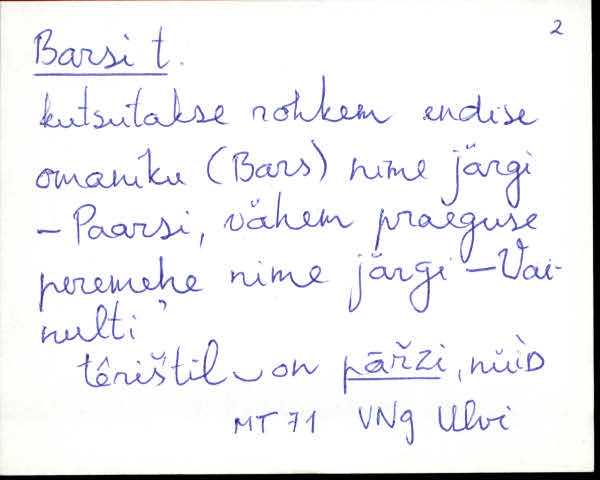 2
Barsi t.
kutsutakse rohkem endise
omaniku (Bars) nime järgi
– Paarsi, vähem praeguse
peremehe nime järgi – Vai-
nulti"
têrištil‿on pārži, nǜiD
MT 71 VNg Ulvi